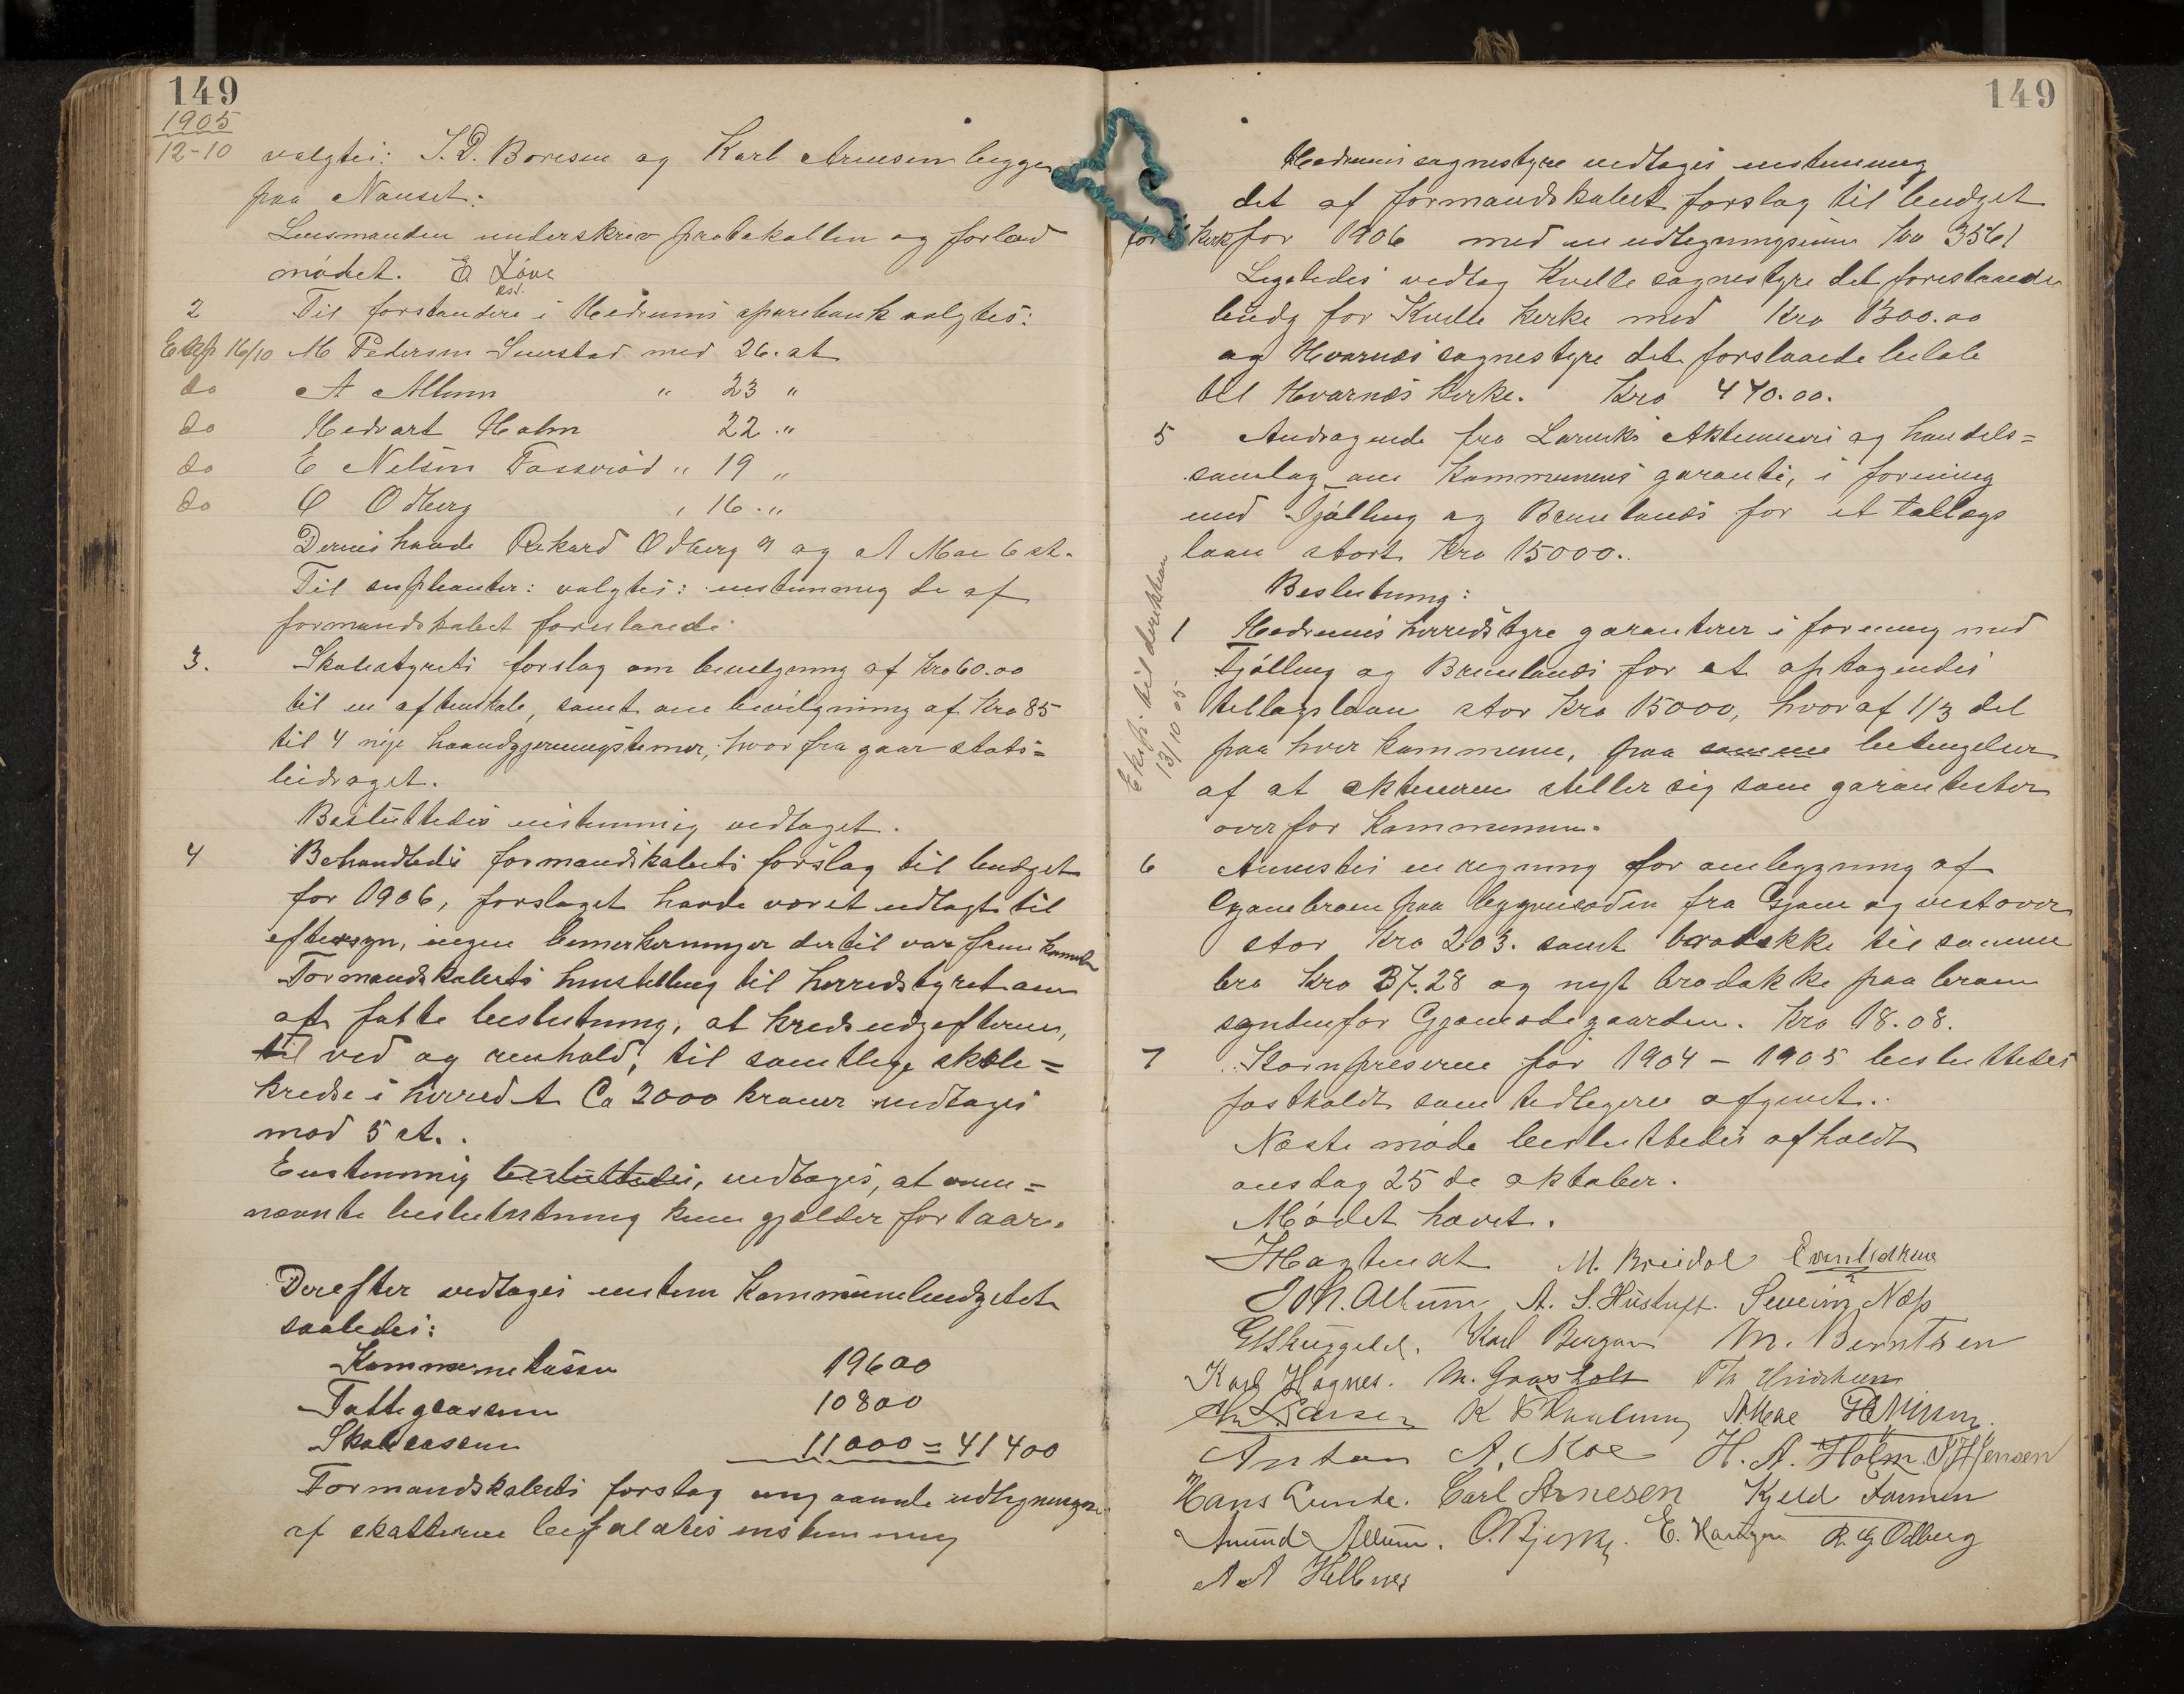 149
1905
12-10 valgtes: I. D. Boresen og Karl Arnesen begge
paa Nanset.
Lensmanden underskrev protokollen og forlod
mødet. E Løve
cst.
2 Til forstandere i Hedrums sparebank valgtes:
Eksp 16/10 M Pedersen Seierstad med 26. st
do A Allum " 23 "
do Hedvart Holm 22 "
do E Nelson Fossevød " 19 "
do O Odberg " 16 . "
Dernæst havde Rikard Odberg 9 og A Moe 6 st.
Til suppleanter: valgtes: enstemmig de af
formandskabet foreslaaede.
3. Skolestyrets forslag om bevilgning af Kro 60.00
til en aftenskole, samt om bevilgning af Kro 85
til 4 nye haandgjerningstimer, hvor fra gaar stats=
bidraget.
Besluttedes enstemmig vedtaget.
4 Behandledes formandskabets forslag til budget
for 1906, forslaget havde været udlagt til
eftersyn, ingen bemerkninger dertil var frem kommen
Formandskabets henstilling til herredstyret om
at fatte beslutning, at kredsudgifterne,
til ved og renhold, til samtlige skole=
kredse i herredet Ca 2000 kroner vedtages
mod 5 st.
Enstemmig besluttedes, vedtoges, at oven=
nævnte beslutning kun gjælder for 1 aar.
Derefter vedtoges enstem Kommunebudgetet
saaledes:
Kommunekassen 19600
Fattigcassen 10800
Skolecassen 11000 = 41400
Formandskabets forslag ang aaende udligningen
af skatterne bifaldtes enstemmig
149
Hedrums sognestyre vedtoges enstemmig
det af formandskabet forslag til budget
for kirke for 1906 med en udligningssum Kro 3561
Ligeledes vedtog Kvelle sognestyre det foreslaaede
budg for Kvelle kirke med Kro 1300.00
og Hvarnæs sognestyre det forslaaede beløb
til Hvarnæs kirke. Kro 470.00.
5 Andragende fra Larviks Aktiemeieri og handels=
samlag om Kommunens garanti, i forening
med Tjølling og Brunlanæs for et tillægs
laan stort Kro 15000.
Beslutning:
1 Hedrums herredstyre garanterer i forening med
Tjølling og Brunlanæs for et optagendes
tillægslaan stor Kro 15000, hvoraf 1/3 del
paa hver kommune, paa samme betingelser
af at aktierne stiller sig som garantister
overfor Kommunen.
Eksp. til direktion
13/10 05
6 Anvistes en regning for ombygning af
Gjonebroen paa bygveioden fra Gjone og vestover
stor Kro 203. samt brodække til samme
bro Kro 37.28 og nyt brodække paa broen
søndenfor Gjonesødegaarden. Kro 18.08.
7 Kornpriserne for 1904 – 1905 besluttedes
fastholdt som tidligere afgivet.
Næste møde besluttedes afholdt
onsdag 25 de oktober.
Mødet hævet.
M. Breidal
Joh. Allum A. S. Hustuft. Severin Næss
G Skuggedal. Karl Bergan M. Berntsen
Karl Hagnes. M. Grasholt Th
Chr Larsen K A Moe
Anton A. Moe H. A. Holm. Jensen
Hans Lunde. Carl Arnesen Kjeld Fammen
Amund Allum. O. Bjerke. E. R. G Odberg
A A Hellenes